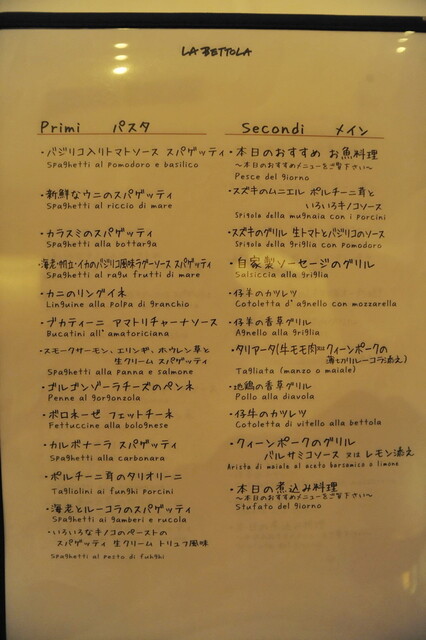 LA BETTOLA
Primi パスタ
・バジリコ入りトマトソース スパゲッティ
Spaghetti al pomodoro e basilico
・新鮮なウニのスパゲッティ
Spaghetti al riccio di mare
・カラスミのスパゲッティ
Spaghetti alla bottarga
・海老・帆立・イカのバジリコ風味ラグーソース スパゲッティ
Spaghetti al ragu frutti di mare
・カニのリングイネ
Linguine alla polpa di granchio
・ブカティーニ アマトリチャーナソース
Bucatini all'amatoriciana
・スモークサーモン、エリンギ、ホウレン草と
生クリーム スパゲッティ
Spaghetti alla panna e salmone
・ゴルゴンゾーラチーズのペンネ
Penne al gorgonzola
・ボロネーゼ フェットチーネ
Fettuccine alla bolognese
・カルボナーラ スパゲッティ
Spaghetti alla carbonara
・ポルチーニ茸のタリオリーニ
Tagliolini ai funghi porcini
・海老とルーコラのスパゲッティ
Spaghetti ai gamberi e rucola
・いろいろなキノコのペーストの
スパゲッティ 生クリーム トリュフ風味
Spaghetti al pesto di funghi
Secondi メイン
・本日のおすすめ お魚料理
〜本日のおすすめメニューをご覧下さい〜
Pesce del giorno
・スズキのムニエル ポルチーニ茸と
いろいろキノコソース
Spigola della mugnaia con i porcini
・スズキのグリル 生トマトとバジリコのソース
Spigola della griglia con pomodoro
・自家製ソーセージのグリル
Salsiccia alla griglia
・仔羊のカツレツ
Cotoletta d'agnello con mozzarella
・仔羊の香草グリル
Agnello alla griglia
・タリアータ(牛モモ肉又はクィーンポークの
薄切りルーコラ添え)
Tagliata (manzo o maiale)
・地鶏の香草グリル
Pollo alla diavola
・仔牛のカツレツ
Cotoletta di vitello alla bettola
・クィーンポークのグリル
バルサミコソース 又は レモン添え
Arista di maiale al aceto barsamico o limone
・本日の煮込み料理
〜本日のおすすめメニューをご覧下さい〜
Stufato del giorno